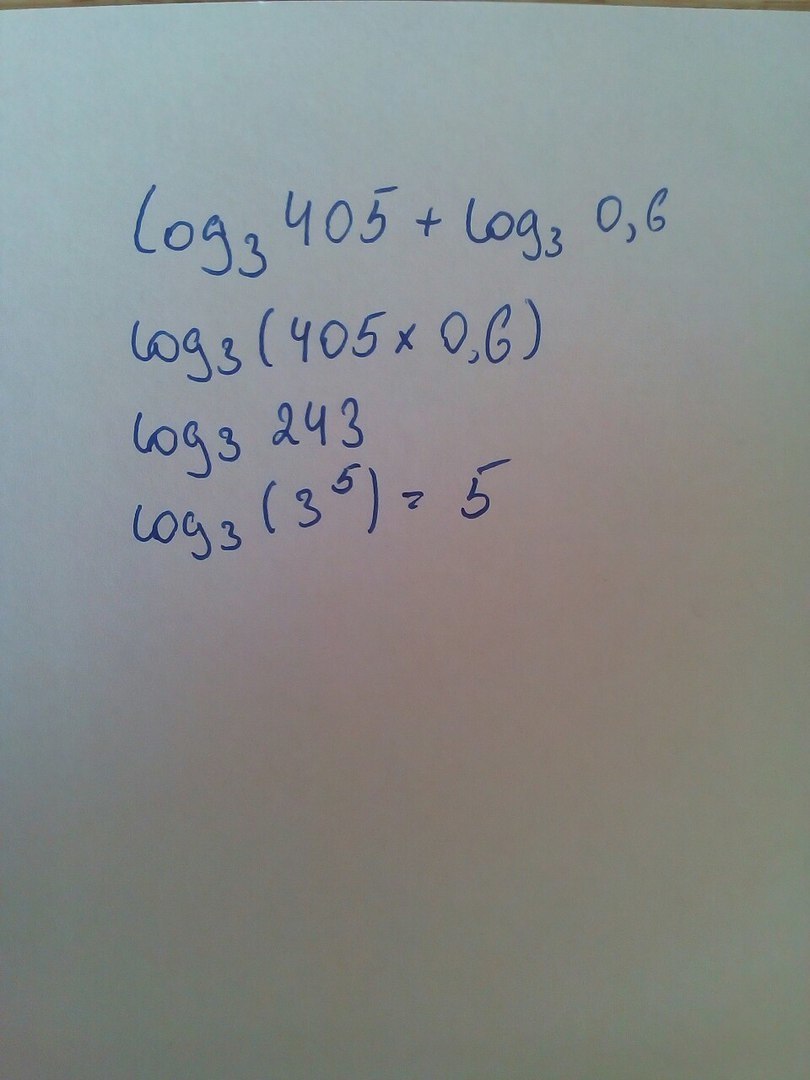 log₃ 405 + log₃ 0,6
log₃(405 × 0,6)
log₃ 243
log₃(3⁵) = 5